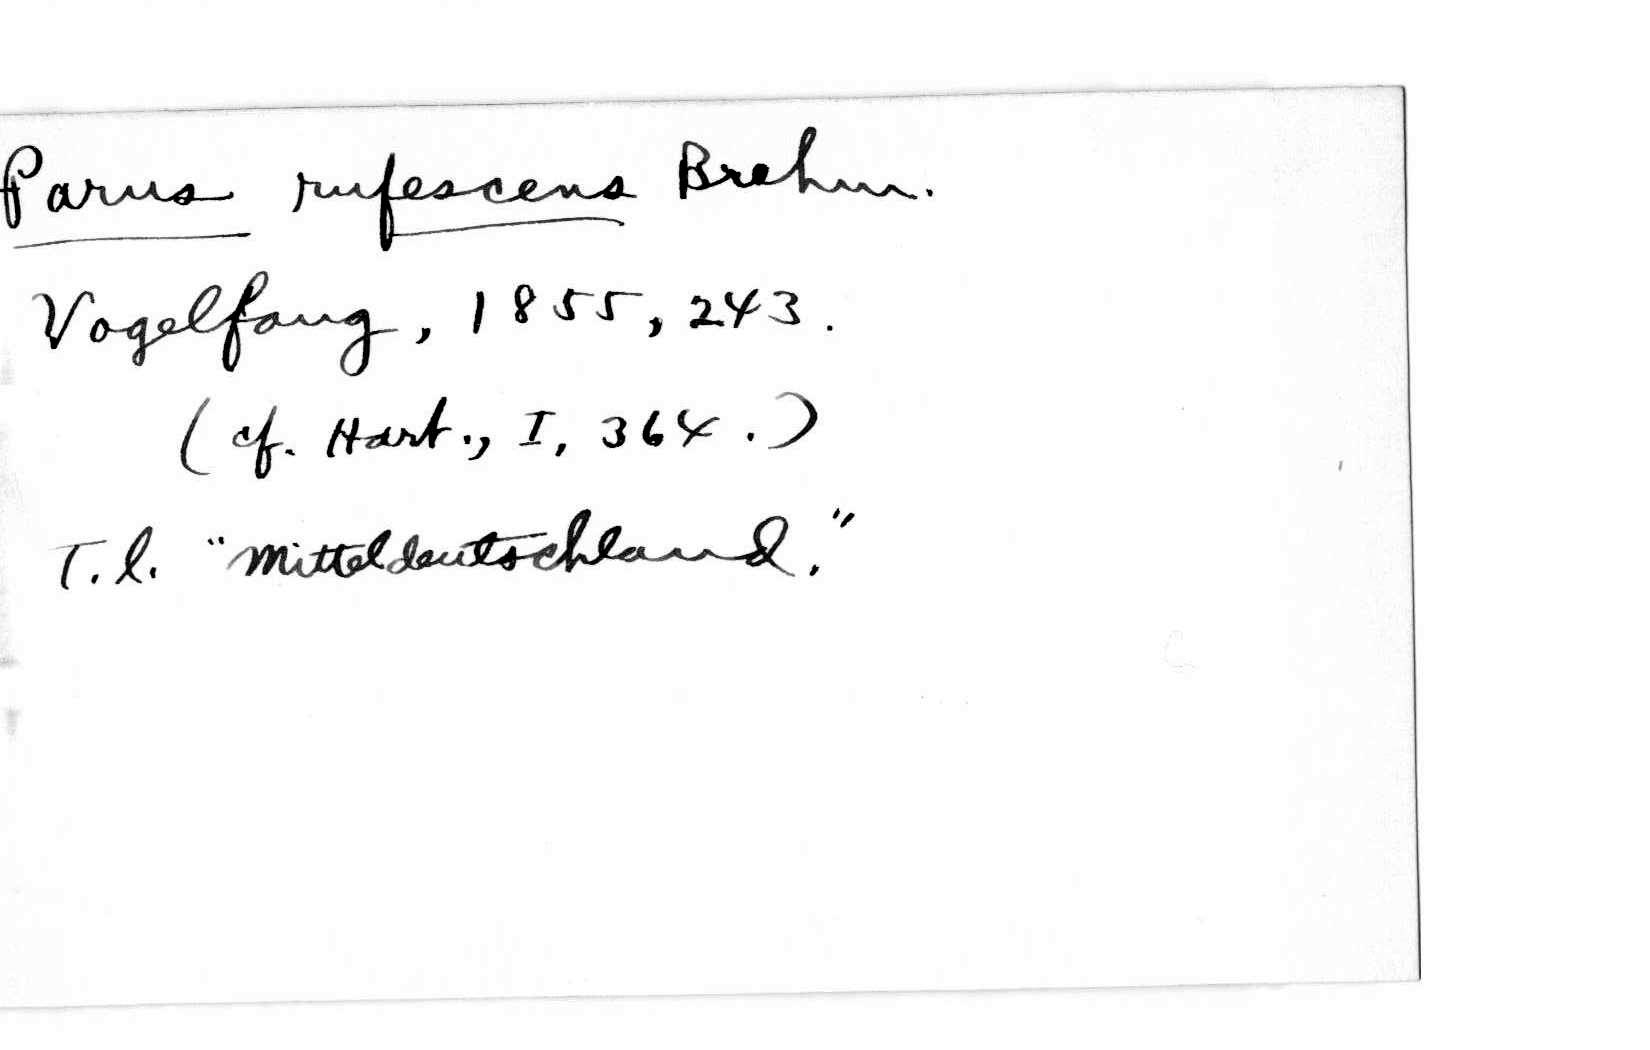 Parus rufescens Brehm.
Vogelfang, 1855, 243.
(cf. Hart., I, 364.)
T.l. "Mitteldeutschland."